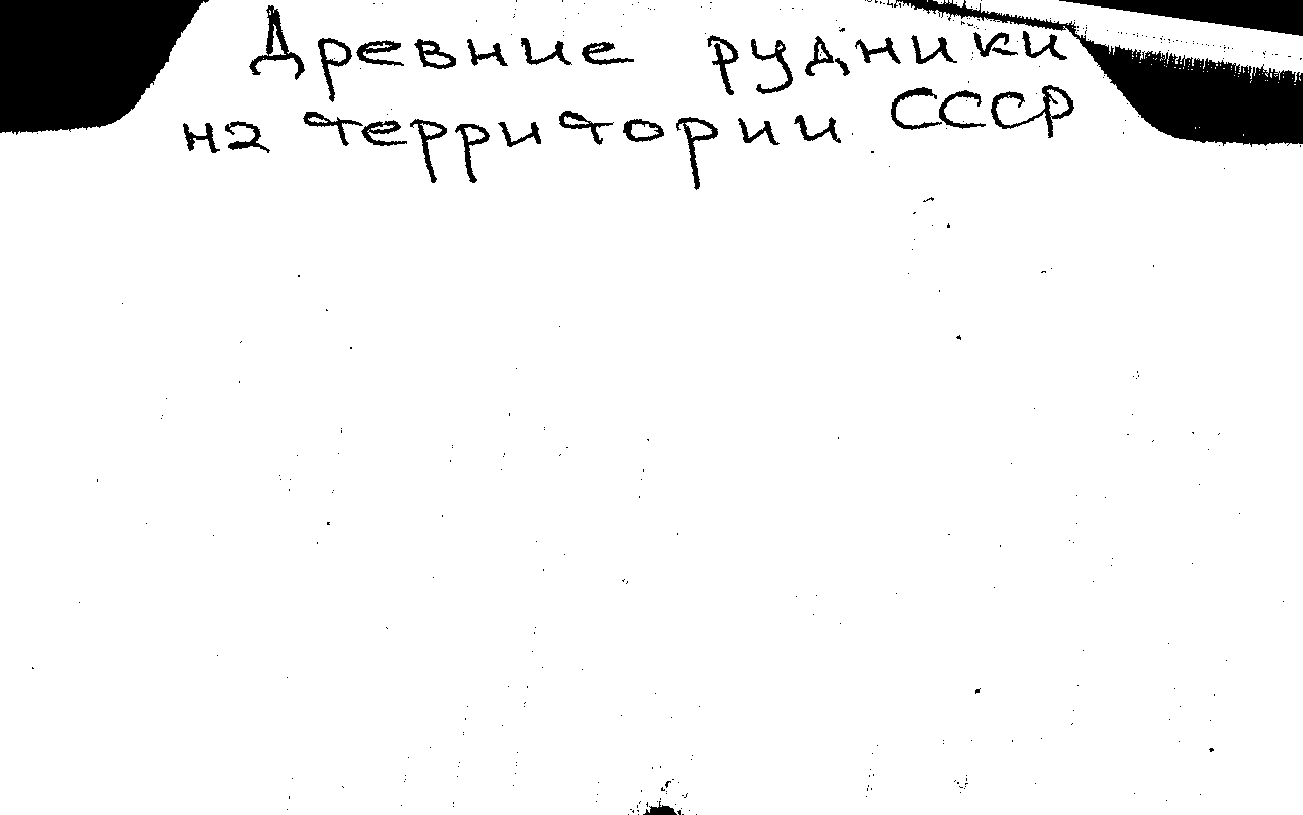 Древние рудники
на территории СССР